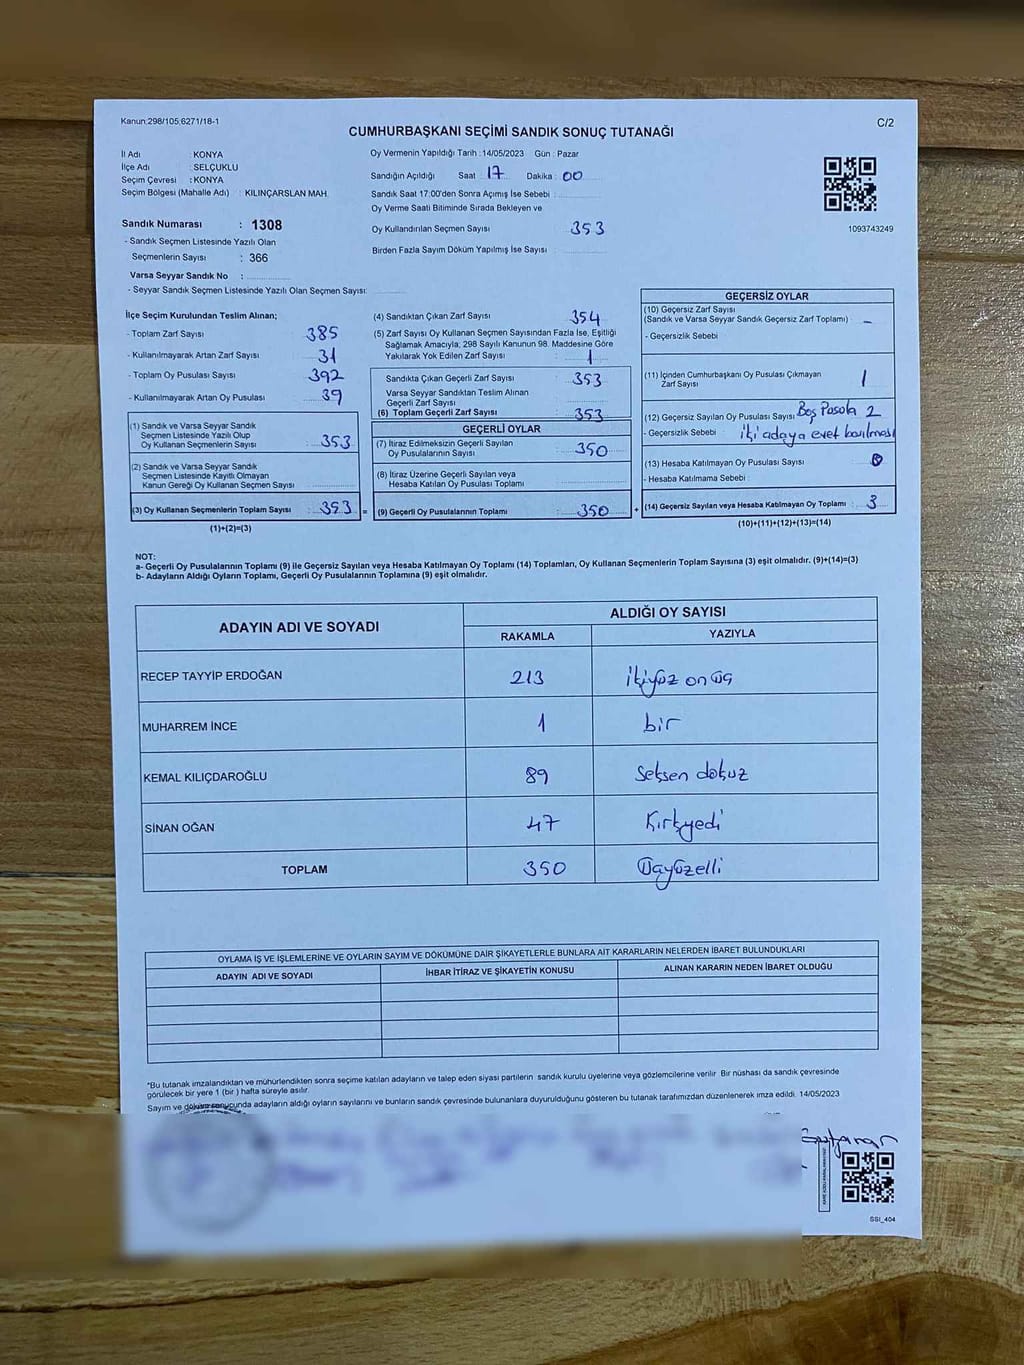 Kanun:298/105;6271/18-1
C/2
CUMHURBAŞKANI SEÇİMİ SANDIK SONUÇ TUTANAĞI
İl Adı : KONYA
İlçe Adı : SELÇUKLU
Seçim Çevresi : KONYA
Seçim Bölgesi (Mahalle Adı) : KILINÇARSLAN MAH.
Sandık Numarası : 1308
- Sandık Seçmen Listesinde Yazılı Olan
Seçmenlerin Sayısı : 366
Varsa Seyyar Sandık No :
- Seyyar Sandık Seçmen Listesinde Yazılı Olan Seçmen Sayısı:
Oy Vermenin Yapıldığı Tarih : 14/05/2023 Gün : Pazar
Sandığın Açıldığı Saat : 17 Dakika : 00
Sandık Saat 17:00'den Sonra Açımış İse Sebebi :
Oy Verme Saati Bitiminde Sırada Bekleyen ve
Oy Kullandırılan Seçmen Sayısı : 353
Birden Fazla Sayım Döküm Yapılmış İse Sayısı :
1093743249
İlçe Seçim Kurulundan Teslim Alınan;
- Toplam Zarf Sayısı : 385
- Kullanılmayarak Artan Zarf Sayısı : 31
- Toplam Oy Pusulası Sayısı : 392
- Kullanılmayarak Artan Oy Pusulası : 39
(1) Sandık ve Varsa Seyyar Sandık
Seçmen Listesinde Yazılı Olup
Oy Kullanan Seçmenlerin Sayısı : 353
(2) Sandık ve Varsa Seyyar Sandık
Seçmen Listesinde Kayıtlı Olmayan
Kanun Gereği Oy Kullanan Seçmen Sayısı :
(3) Oy Kullanan Seçmenlerin Toplam Sayısı : 353 =
(1)+(2)=(3)
(4) Sandıktan Çıkan Zarf Sayısı : 354
(5) Zarf Sayısı Oy Kullanan Seçmen Sayısından Fazla İse, Eşitliği
Sağlamak Amacıyla; 298 Sayılı Kanunun 98. Maddesine Göre
Yakılarak Yok Edilen Zarf Sayısı : 1
Sandıkta Çıkan Geçerli Zarf Sayısı : 353
Varsa Seyyar Sandıktan Teslim Alınan
Geçerli Zarf Sayısı :
(6) Toplam Geçerli Zarf Sayısı : 353
GEÇERLİ OYLAR
(7) İtiraz Edilmeksizin Geçerli Sayılan
Oy Pusulalarının Sayısı : 350
(8) İtiraz Üzerine Geçerli Sayılan veya
Hesaba Katılan Oy Pusulası Toplamı :
(9) Geçerli Oy Pusulalarının Toplamı : 350 +
GEÇERSİZ OYLAR
(10) Geçersiz Zarf Sayısı
(Sandık ve Varsa Seyyar Sandık Geçersiz Zarf Toplamı) : -
- Geçersizlik Sebebi
(11) İçinden Cumhurbaşkanı Oy Pusulası Çıkmayan
Zarf Sayısı : 1
(12) Geçersiz Sayılan Oy Pusulası Sayısı : Boş Pusola 2
- Geçersizlik Sebebi : iki adaya evet basılması
(13) Hesaba Katılmayan Oy Pusulası Sayısı : 0
- Hesaba Katılmama Sebebi :
(14) Geçersiz Sayılan veya Hesaba Katılmayan Oy Toplamı : 3
(10)+(11)+(12)+(13)=(14)
NOT:
a- Geçerli Oy Pusulalarının Toplamı (9) ile Geçersiz Sayılan veya Hesaba Katılmayan Oy Toplamı (14) Toplamları, Oy Kullanan Seçmenlerin Toplam Sayısına (3) eşit olmalıdır. (9)+(14)=(3)
b- Adayların Aldığı Oyların Toplamı, Geçerli Oy Pusulalarının Toplamına (9) eşit olmalıdır.
ADAYIN ADI VE SOYADI ALDIĞI OY SAYISI
RAKAMLA YAZIYLA
RECEP TAYYİP ERDOĞAN 213 ikiyüz onüç
MUHARREM İNCE 1 bir
KEMAL KILIÇDAROĞLU 89 seksen dokuz
SİNAN OĞAN 47 Kırkyedi
TOPLAM 350 Üçyüzelli
OYLAMA İŞ VE İŞLEMLERİNE VE OYLARIN SAYIM VE DÖKÜMÜNE DAİR ŞİKAYETLERLE BUNLARA AİT KARARLARIN NELERDEN İBARET BULUNDUKLARI
ADAYIN ADI VE SOYADI İHBAR İTİRAZ VE ŞİKAYETİN KONUSU ALINAN KARARIN NEDEN İBARET OLDUĞU
*Bu tutanak imzalandıktan ve mühürlendikten sonra seçime katılan adayların ve talep eden siyasi partilerin sandık kurulu üyelerine veya gözlemcilerine verilir. Bir nüshası da sandık çevresinde
görülecek bir yere 1 (bir) hafta süreyle asılır.
Sayım ve döküm sonucunda adayların aldığı oyların sayılarını ve bunların sandık çevresinde bulunanlara duyurulduğunu gösteren bu tutanak tarafımızdan düzenlenerek imza edildi. 14/05/2023
SSI_404